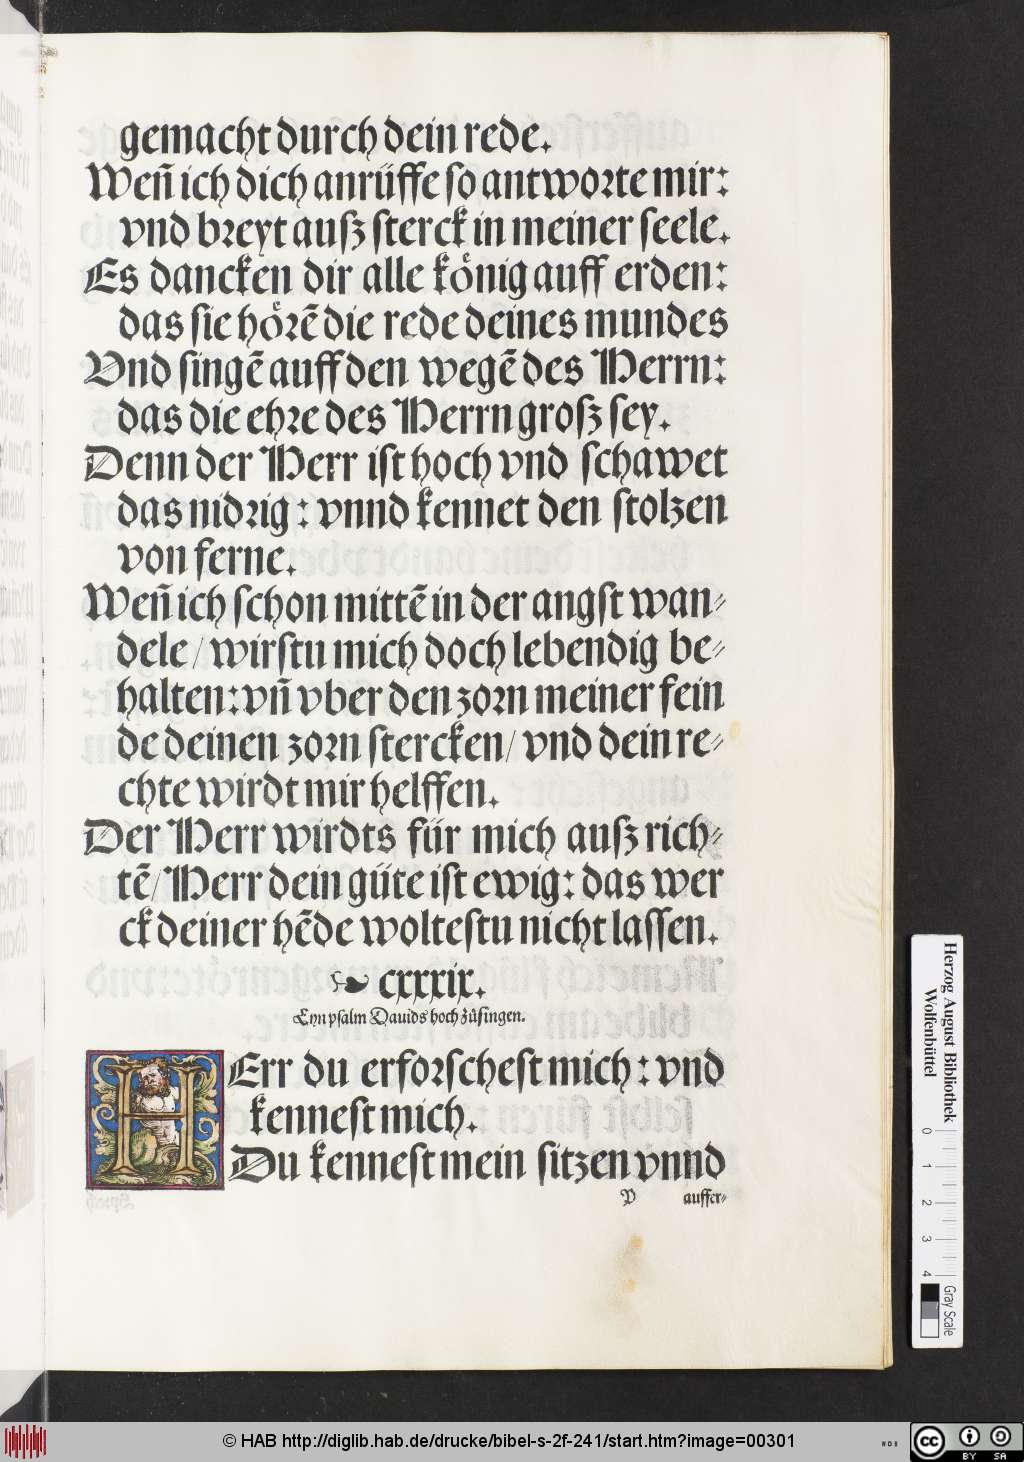 gemacht durch dein rede.
Weñ ich dich anrüffe so antworte mir:
vnd breyt außz sterck in meiner seele.
Es dancken dir alle kǒnig auff erden:
das sie hǒrẽ die rede deines mundes
Vnd singẽ auff den wegẽ des Herrn:
das die ehre des Herrn groß sey.
Denn der Herr ist hoch vnd schawet
das nidrig: vnnd kennet den stolzen
von ferne.
Weñ ich schon mittẽ in der angst wan⸗
dele/ wirstu mich doch lebendig be⸗
halten: vñ vber den zorn meiner fein
de deinen zorn stercken/ vnd dein re⸗
chte wirdt mir helffen.
Der Herr wirdts für mich auß rich⸗
tẽ/ Herr dein güte ist ewig: das wer
ck deiner hẽde woltestu nicht lassen.
cxxxix.
Eyn psalm Dauids hoch zůsingen.
HErr du erforschest mich: vnd
kennest mich.
Du kennest mein sitzen vnnd
V auffer⸗
Herzog August Bibliothek
Wolfenbüttel
0 1 2 3 4
Gray Scale
© HAB http://diglib.hab.de/drucke/bibel-s-2f-241/start.htm?image=00301
WDB
cc BY SA